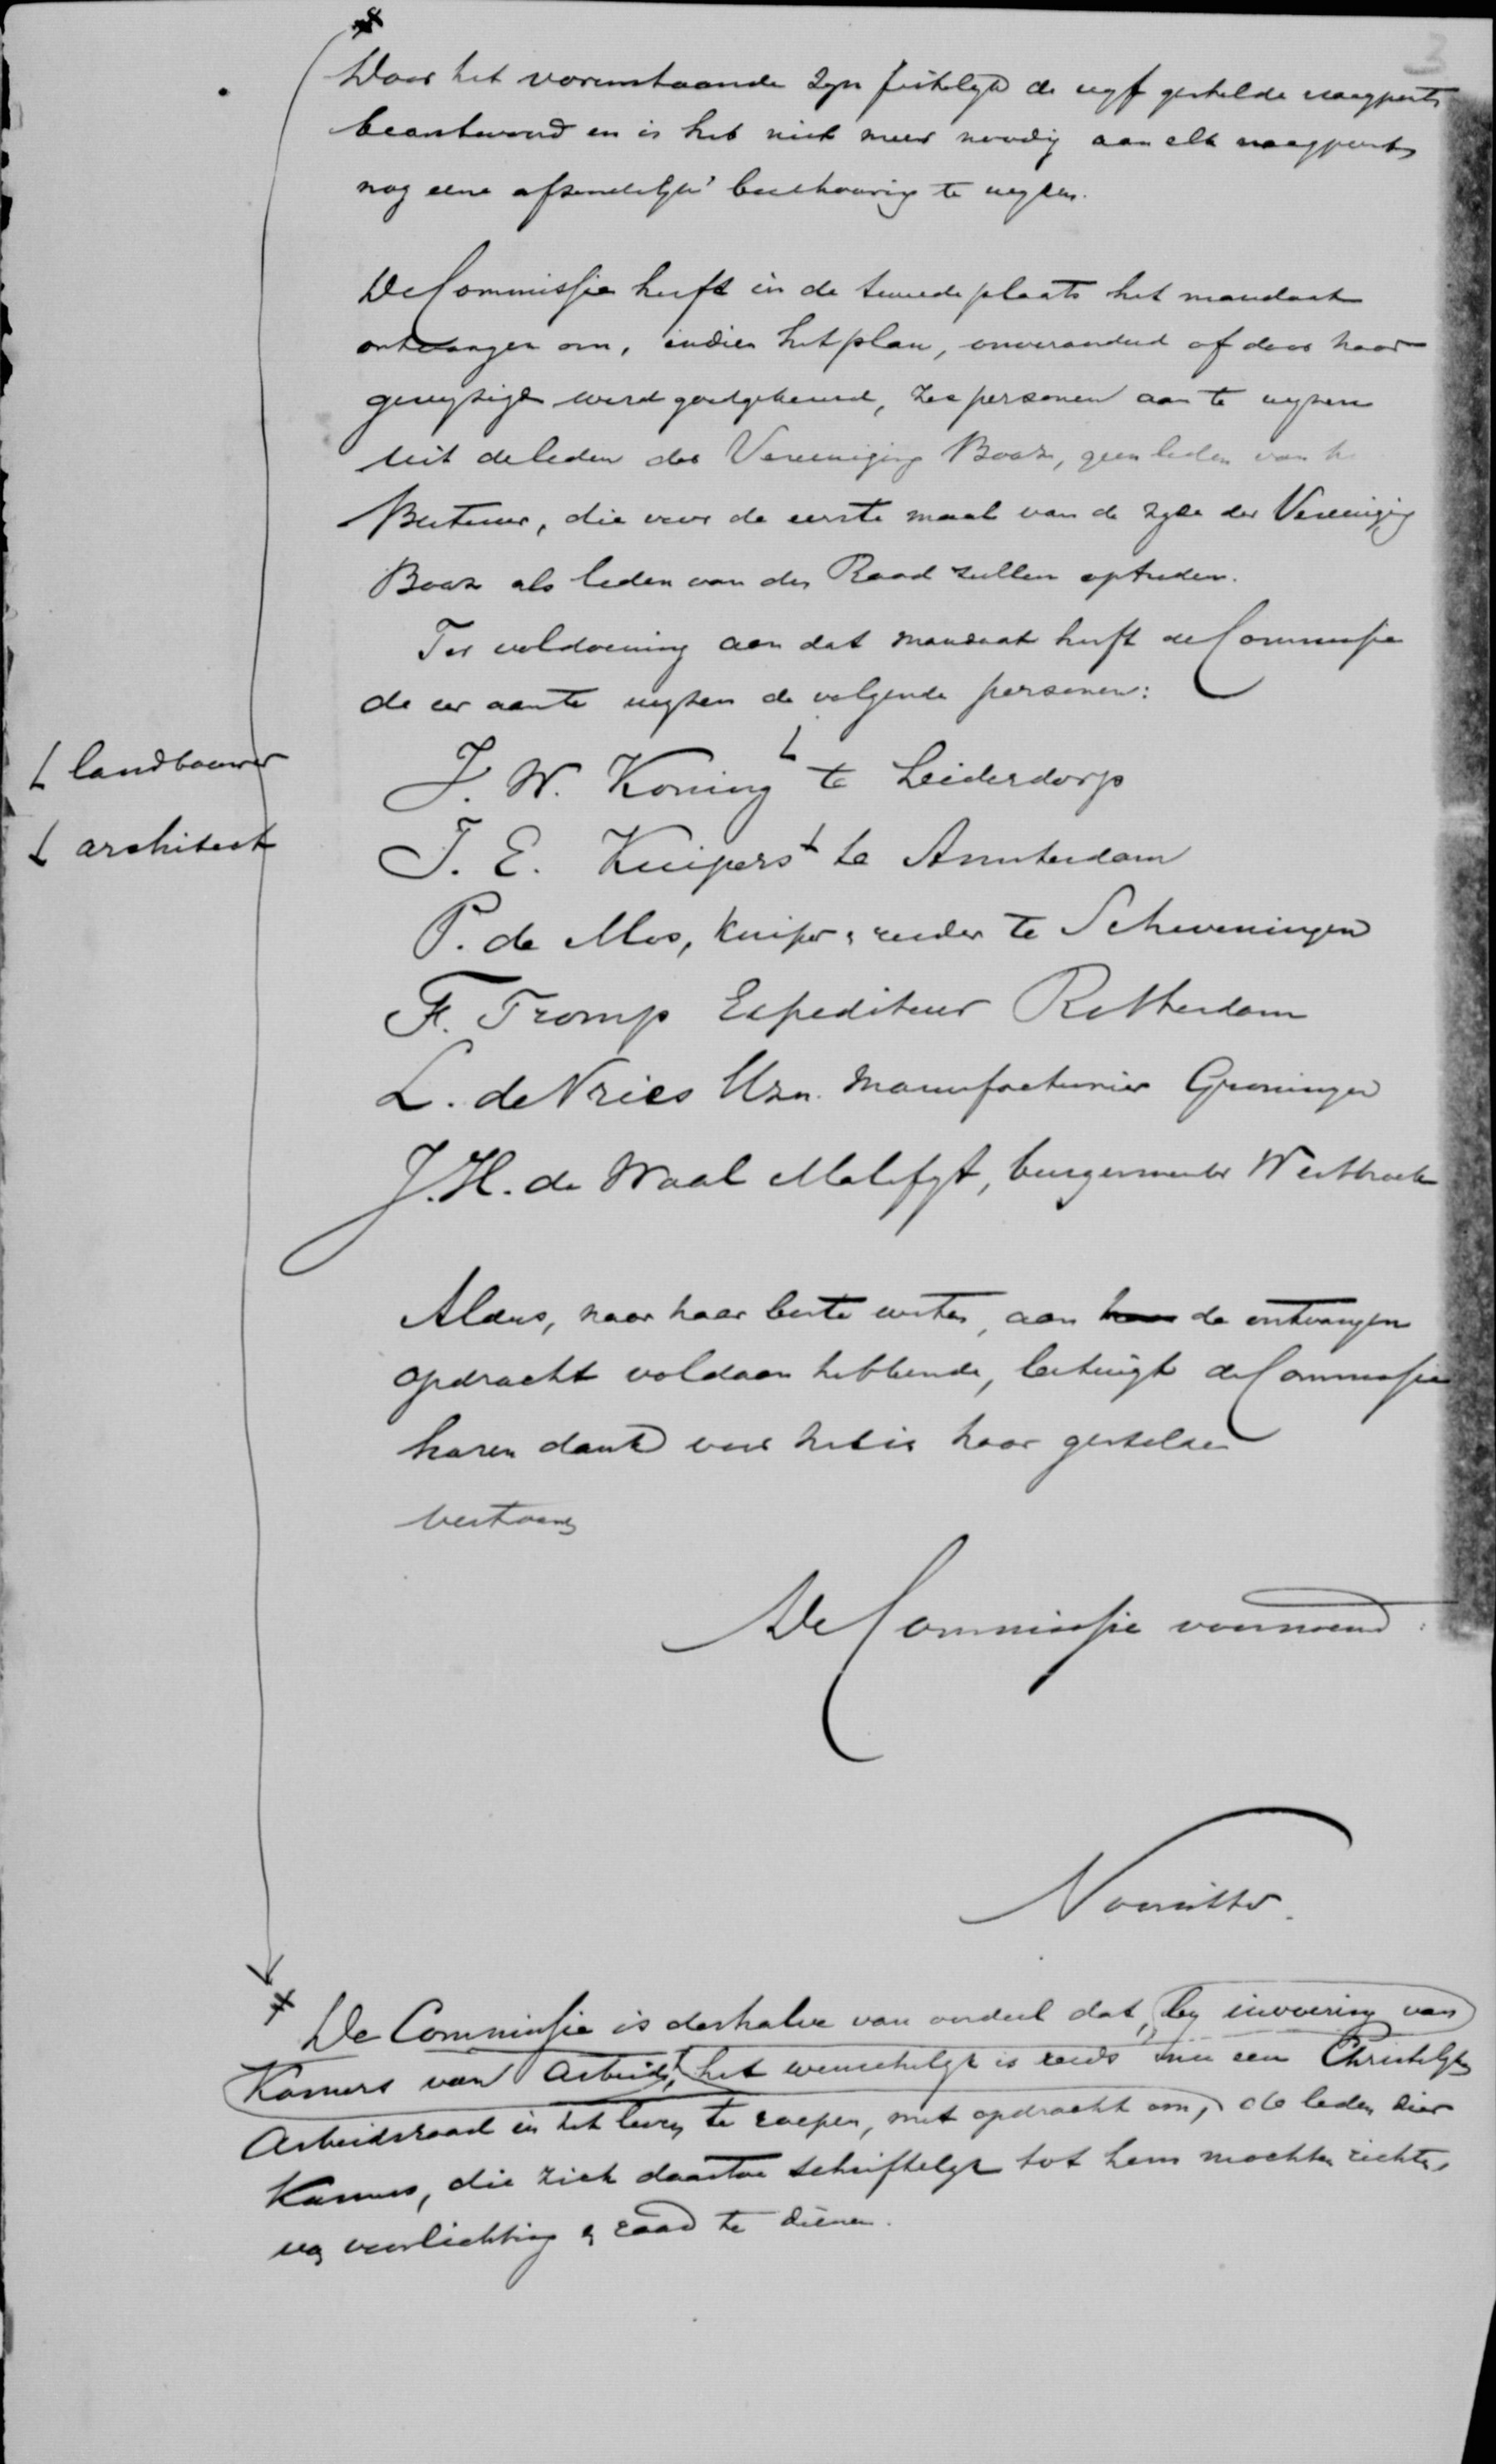 3
Door het vorenstaande zyn feitelyk de vyf gestelde vraagpunten
beantwoord en is het niet meer noodig aan elk vraagpunt
nog eene afzonderlyke beschouwing te wyden.
De Commissie heeft in de tweede plaats het mandaat
ontvangen om, indien het plan, onveranderd of door haar
gewyzigd werd goedgekeurd, zes personen aan te wyzen
uit de leden der Vereeniging Boaz, geen leden van h
Bestuur, die voor de eerste maal van de zyde der Vereeniging
Boaz als leden van den Raad zullen optreden.
Ter voldoening aan dat mandaat heeft de Commissie
de eer aan te wyzen de volgende personen:
landbouwer
J. W. Koning te Leiderdorp
architect
T. E. Kuipers te Amsterdam
P. de Mos, kuiper & reeder te Scheveningen
F. Tromp Expediteur Rotterdam
L. de Vries Uzn. Manufacturier Groningen
J. H. de Waal Malefyt, burgemeester Westbroek
Aldus, naar haar beste weten, aan de ontvangen
opdracht voldaan hebbende, betuigt de Commissie
haren dank voor het in haar gestelde
vertrouwen
De Commissie voornoemd:
Voorzitter.
De Commissie is derhalve van oordeel dat, by invoering van
Kamers van Arbeid, het wenschelyk is reeds nu een Christelyken
Arbeidsraad in het leven te roepen, met opdracht om, de leden dier
Kamers, die zich daartoe schriftelyk tot hem mochten richten,
van voorlichting & raad te dienen.